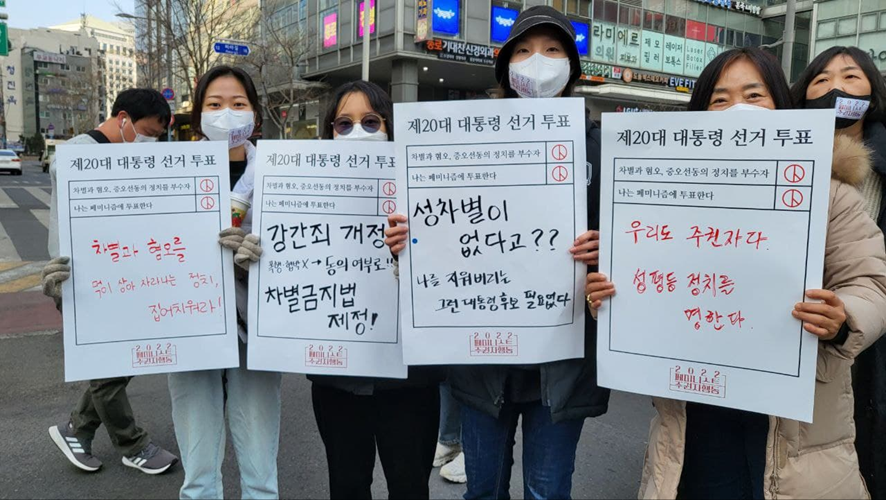 제20대 대통령 선거 투표
차별과 혐오, 증오선동의 정치를 부수자
나는 페미니즘에 투표한다
차별과 혐오를
먹이 삼아 자라나는 정치,
집어치워라!
2022
페미니스트
주권자행동
제20대 대통령 선거 투표
차별과 혐오, 증오선동의 정치를 부수자
나는 페미니즘에 투표한다
강간죄 개정
폭행·협박X→동의 여부로!!
차별금지법
제정!
2022
페미니스트
주권자행동
제20대 대통령 선거 투표
차별과 혐오, 증오선동의 정치를 부수자
나는 페미니즘에 투표한다
성차별이
없다고??
나를 지워버리는
그런 대통령후보 필요없다
2022
페미니스트
주권자행동
제20대 대통령 선거 투표
차별과 혐오, 증오선동의 정치를 부수자
나는 페미니즘에 투표한다
우리도 주권자다.
성평등 정치를
명한다.
2022
페미니스트
주권자행동
라미에르
의원
제모
레이저
리프팅